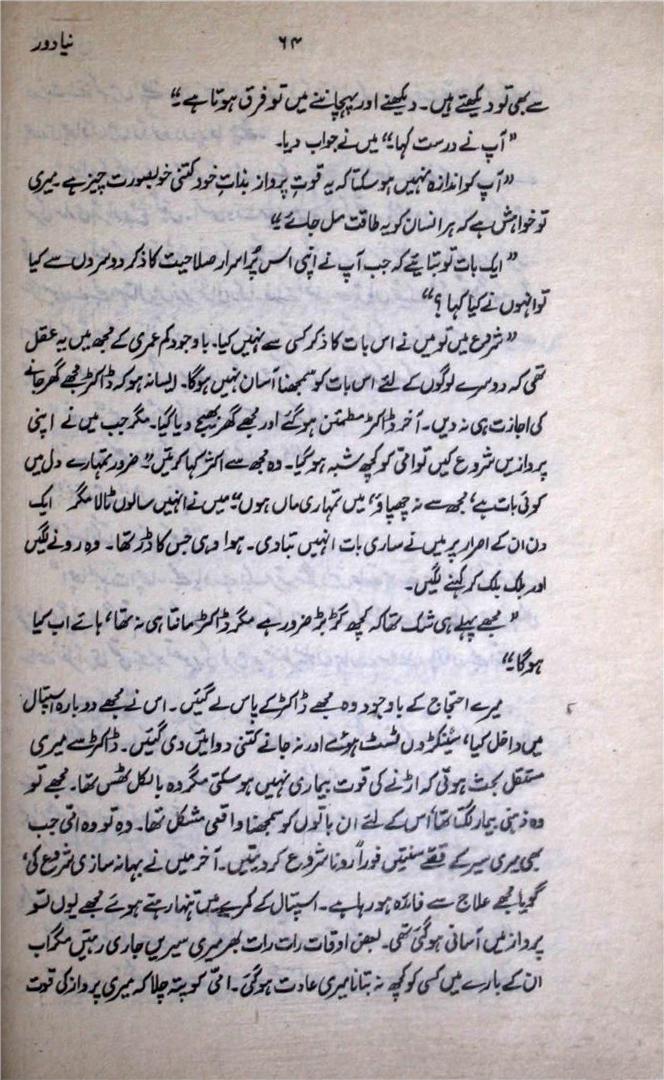 نیا دور ۶۴
سے بھی تو دیکھتے ہیں۔ دیکھنے اور پہچاننے میں تو فرق ہوتا ہے۔“
”آپ نے درست کہا۔“ میں نے جواب دیا۔
”آپ کو اندازہ نہیں ہو سکتا کہ یہ قوتِ پرواز بذاتِ خود کتنی خوبصورت چیز ہے۔ میری
تو خواہش ہے کہ ہر انسان کو یہ طاقت مل جائے۔“
”ایک بات تو بتایئے کہ جب آپ نے اپنی اس پُراسرار صلاحیت کا ذکر دوسروں سے کیا
تو انہوں نے کیا کہا؟“
”شروع میں تو میں نے اس بات کا ذکر کسی سے نہیں کیا۔ باوجود کم عمری کے مجھ میں یہ عقل
تھی کہ دوسرے لوگوں کے لئے اس بات کو سمجھنا آسان نہیں ہوگا۔ ایسا نہ ہو کہ ڈاکٹر مجھے گھر جانے
کی اجازت ہی نہ دیں۔ آخر ڈاکٹر مطمئن ہو گئے اور مجھے گھر بھیج دیا گیا۔ مگر جب میں نے اپنی
پروازیں شروع کیں تو امّی کو کچھ شبہ ہو گیا۔ وہ مجھ سے اکثر کہا کرتیں ”ضرور تمہارے دل میں
کوئی بات ہے، مجھ سے نہ چھپاؤ، میں تمہاری ماں ہوں“ میں نے انہیں سالوں ٹالا مگر ایک
دن ان کے اصرار پر میں نے ساری بات انہیں بتا دی۔ ہوا وہی جس کا ڈر تھا۔ وہ رونے لگیں
اور بلک بلک کر کہنے لگیں۔
”مجھے پہلے ہی شک تھا کہ کچھ گڑبڑ ضرور ہے مگر ڈاکٹر مانتا ہی نہ تھا، ہائے اب کیا
ہوگا۔“
میرے احتجاج کے باوجود وہ مجھے ڈاکٹر کے پاس لے گئیں۔ اس نے مجھے دوبارہ اسپتال
میں داخل کیا، سینکڑوں ٹسٹ ہوئے اور نہ جانے کتنی دوائیں دی گئیں۔ ڈاکٹر سے میری
مستقل بحث ہوتی کہ اڑنے کی قوت بیماری نہیں ہو سکتی مگر وہ بالکل ٹھس تھا۔ مجھے تو
وہ ذہنی بیمار لگتا تھا اس کے لئے ان باتوں کو سمجھنا واقعی مشکل تھا۔ وہ تو وہ امّی جب
بھی میری سیر کے قصّے سنتیں فوراً رونا شروع کر دیتیں۔ آخر میں نے بہانہ سازی شروع کی،
گویا مجھے علاج سے فائدہ ہو رہا ہے۔ اسپتال کے کمرے میں تنہا رہتے ہوئے مجھے یوں تو
پرواز میں آسانی ہو گئی تھی۔ بعض اوقات رات رات بھر میری سیریں جاری رہتیں مگر اب
ان کے بارے میں کسی کو کچھ نہ بتانا میری عادت ہو گئی۔ امّی کو پتہ چلا کہ میری پرواز کی قوت